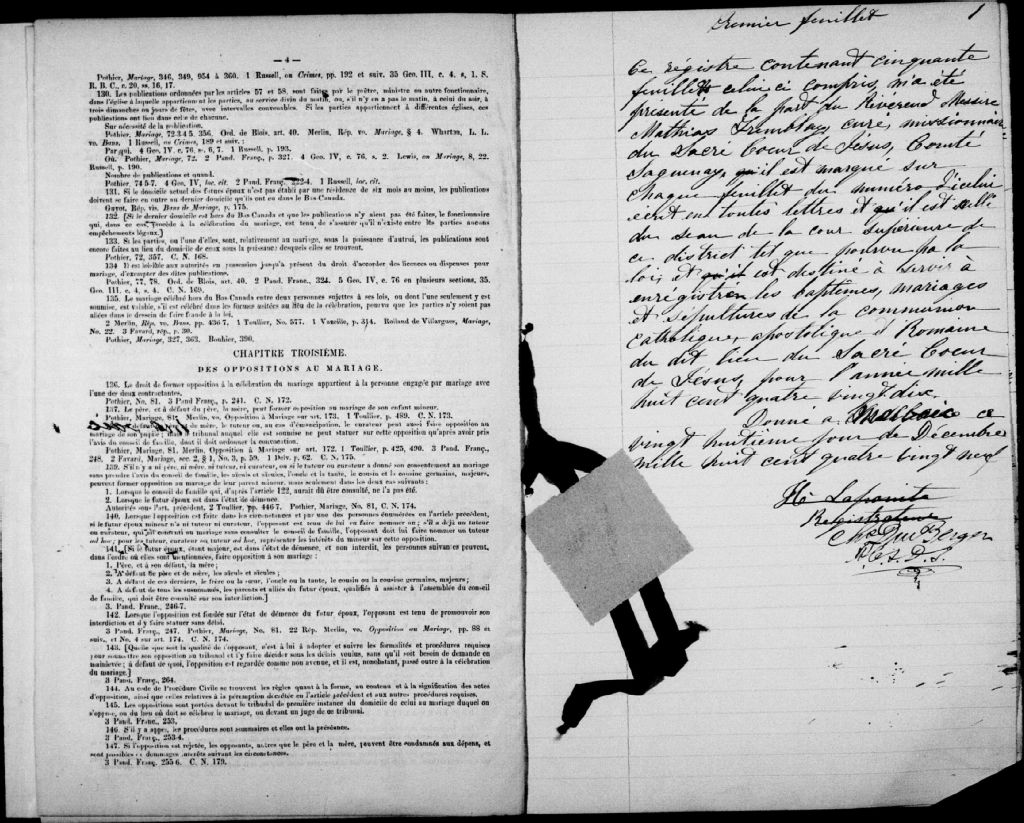 — 4 —
Pothier, Mariage, 346, 349, 954 à 260. 1 Russell, on Crimes, pp. 192 et suiv. 35 Geo. III, c. 4, s. 1. S.
R. B. C., c. 20, ss. 16, 17.
130. Les publications ordonnées par les articles 57 et 58, sont faites par le prêtre, ministre ou autre fonctionnaire,
dans l'église à laquelle appartiennent les parties, au service divin du matin, ou, s'il n'y en a pas le matin, à celui du soir, à
trois dimanches ou jours de fêtes, avec intervalles convenables. Si les parties appartiennent à différentes églises, ces
publications ont lieu dans celle de chacune.
Sur nécessité de la publication.
Pothier, Mariage, 72 3 4 5. 356. Ord. de Blois, art. 40. Merlin, Rép. vo. Mariage, § 4. Wharton, L. L.
vo. Bans. 1 Russell, on Crimes, 189 et suiv. :
Par qui. 4 Geo. IV, c. 76, s. 6, 7. 1 Russell, p. 193.
Où. Pothier, Mariage, 72. 2 Pand. Franç., p. 321. 4 Geo. IV, c. 76, s. 2. Lewis, on Mariage, 8, 22.
Russell, p. 190.
Nombre de publications et quand.
Pothier, 74 5-7. 4 Geo. IV, loc. cit. 2 Pand. Franç. 4. 1 Russell, loc. cit.
131. Si le domicile actuel des futurs époux n'est pas établi par une résidence de six mois au moins, les publications
doivent se faire en outre au dernier domicile qu'ils ont eu dans le Bas-Canada.
Guyot, Rép. vis. Bans de Mariage, p. 175.
132. [Si le dernier domicile est hors du Bas Canada et que les publications n'y aient pas été faites, le fonctionnaire
qui, dans ce cas, procède à la célébration du mariage, est tenu de s'assurer qu'il n'existe entre les parties aucuns
empêchements légaux.]
133. Si les parties, ou l'une d'elles, sont, relativement au mariage, sous la puissance d'autrui, les publications sont
encore faites au lieu du domicile de ceux sous la puissance desquels elles se trouvent.
Pothier, 72, 357. C. N. 168.
134 Il est loisible aux autorités en possession jusqu'à présent du droit d'accorder des licences ou dispenses pour
mariage, d'exempter des dites publications.
Pothier, 77, 78. Ord. de Blois, art. 40. 2 Pand. Franc., 324. 5 Geo. IV, c. 76 en plusieurs sections, 35.
Geo. III, c. 4, s. 4. C. N. 169.
135. Le mariage célébré hors du Bas Canada entre deux personnes sujettes à ses lois, ou dont l'une seulement y est
soumise, est valable, s'il est célébré dans les formes usitées au lieu de la célébration, pourvu que les parties n'y soient pas
allées dans le dessein de faire fraude à la loi.
2 Merlin, Rép. vo. Bans, pp. 436 7, 1 Toullier, No. 577. 1 Vazeille, p. 314. Rolland de Villargues, Mariage,
No. 22. 3 Favard, rép., p. 30.
Pothier, Mariage, 327, 363. Bouhier, 390.
CHAPITRE TROISIÈME.
DES OPPOSITIONS AU MARIAGE.
136. Le droit de former opposition à la célébration du mariage appartient à la personne engagée par mariage avec
l'une des deux contractantes.
Pothier, No. 81. 3 Pand Franç., p. 241. C. N. 172.
137. Le père, et à défaut du père, la mère, peut former opposition au mariage de son enfant mineur.
Pothier, Mariage, 81. Merlin, vo. Opposition à Mariage sur art. 173. 1 Toullier, p. 489. C. N. 173.
défaut de mère, le tuteur ou, au cas d'émancipation, le curateur peut aussi faire opposition au
mariage de son pupille; mais le tribunal auquel elle est soumise ne peut statuer sur cette opposition qu'après avoir pris
l'avis du conseil de famille, dont il doit ordonner la convocation.
Pothier, Mariage, 81. Merlin, Opposition à Mariage sur art. 172. 1 Toullier, p. 425, 490. 3 Pand. Franç.,
248, 2 Favard, Mariage, sec. 2, § 1, No. 3, p. 59. 1 Delv. p. 62. C. N. 175.
139. S'il n'y a ni père, ni mère, ni tuteur, ni curateur, ou si le tuteur ou curateur a donné son consentement au mariage
sans prendre l'avis du conseil de famille, les aïeuls et aïeules, l'oncle et la tante, le cousin et la cousine germains, majeurs,
peuvent former opposition au mariage de leur parent mineur, mais seulement dans les deux cas suivants :
1. Lorsque le conseil de famille qui, d'après l'article 122, aurait dû être consulté, ne l'a pas été.
2. Lorsque le futur époux est dans l'état de démence.
Autorités sous l'art. précédent, 2 Toullier, pp. 446 7. Pothier, Mariage, No. 81, C. N. 174.
140. Lorsque l'opposition est faite dans les circonstances et par une des personnes énumérées en l'article précédent,
si le futur époux mineur n'a ni tuteur ni curateur, l'opposant est tenu de lui en faire nommer un ; s'il a déjà un tuteur
ou curateur, qui ait contracté au mariage sans consulter le conseil de famille, l'opposant doit lui faire nommer un tuteur
ad hoc; pour les tuteur, curateur ou tuteur ad hoc, représenter les intérêts du mineur sur cette opposition.
141. [Si le futur époux, étant majeur, est dans l'état de démence, et non interdit, les personnes suivantes peuvent,
dans l'ordre où elles sont mentionnées, faire opposition à son mariage :
1. Père, et à son défaut, la mère;
2. A défaut de père et de mère, les aïeuls et aïeules ;
3. A défaut de ces derniers, le frère ou la sœur, l'oncle ou la tante, le cousin ou la cousine germains, majeurs ;
4. A défaut de tous les susnommés, les parents et alliés du futur époux, qualifiés à assister à l'assemblée du conseil
de famille, qui doit être consulté sur son interdiction.]
3. Pand. Franc., 246-7.
142. Lorsque l'opposition est fondée sur l'état de démence du futur époux, l'opposant est tenu de promouvoir son
interdiction et d'y faire statuer sans délai.
3 Pand. Franç., 247. Pothier, Mariage, No. 81. 22 Rép. Merlin, vo. Opposition au Mariage, pp. 88 et
suiv., et No. 4 sur art. 174. C. N. 174.
143. [Quelle que soit la qualité de l'opposant, c'est à lui à adopter et suivre les formalités et procédures requises
pour soumettre son opposition au tribunal et l'y faire décider sous les délais voulus, sans qu'il soit besoin de demande en
mainlevée ; à défaut de quoi, l'opposition est regardée comme non avenue, et il est, nonobstant, passé outre à la célébration
du mariage.]
3 Pand. Franç., 264.
144. Au code de Procédure Civile se trouvent les règles quant à la forme, au contenu et à la signification des actes
d'opposition, ainsi que celles relatives à la péremption décrétée en l'article précédent et aux autres procédures requises.
145. Les oppositions sont portées devant le tribunal de première instance du domicile de celui au mariage duquel on
s'oppose, ou du lieu où doit se célébrer le mariage, ou devant un juge de ce tribunal.
3 Pand. Franc., 253.
146. S'il y a appel, les procédures sont sommaires et elles ont la préséance.
3 Pand. Franç., 253-4.
147. Si l'opposition est rejetée, les opposants, autres que le père et la mère, peuvent être condamnés aux dépens, et
sont passibles de dommages-intérêts suivant les circonstances.
3 Pand. Franç. 255 6. C. N. 179.
Premier feuillet 1
Ce régistre contenant cinquante
feuillets celui ci compris, m'a été
présenté de la part du Révérend Messire
Mathias Tremblay, curé, missionnaire
du Sacré Coeur de Jésus, Comté
Saguenay, qu'il est marqué sur
chaque feuillet du numéro d'icelui
écrit en toutes lettres et qu'il est scellé
du sceau de la cour Supérieure de
ce district tel que pourvu par la
loi, et qu'il est destiné à servir à
enrégistrer les baptêmes, mariages
et sépultures de la communion
catholique, apostolique et Romaine
du dit lieu du Sacré Coeur
de Jésus, pour l'année mille
huit cent quatre vingt dix.
Donné à Malbaie ce
vingt huitième jour de Décembre
mille huit cent quatre vingt neuf
Chs Du Berger
P. C. S. D. S.